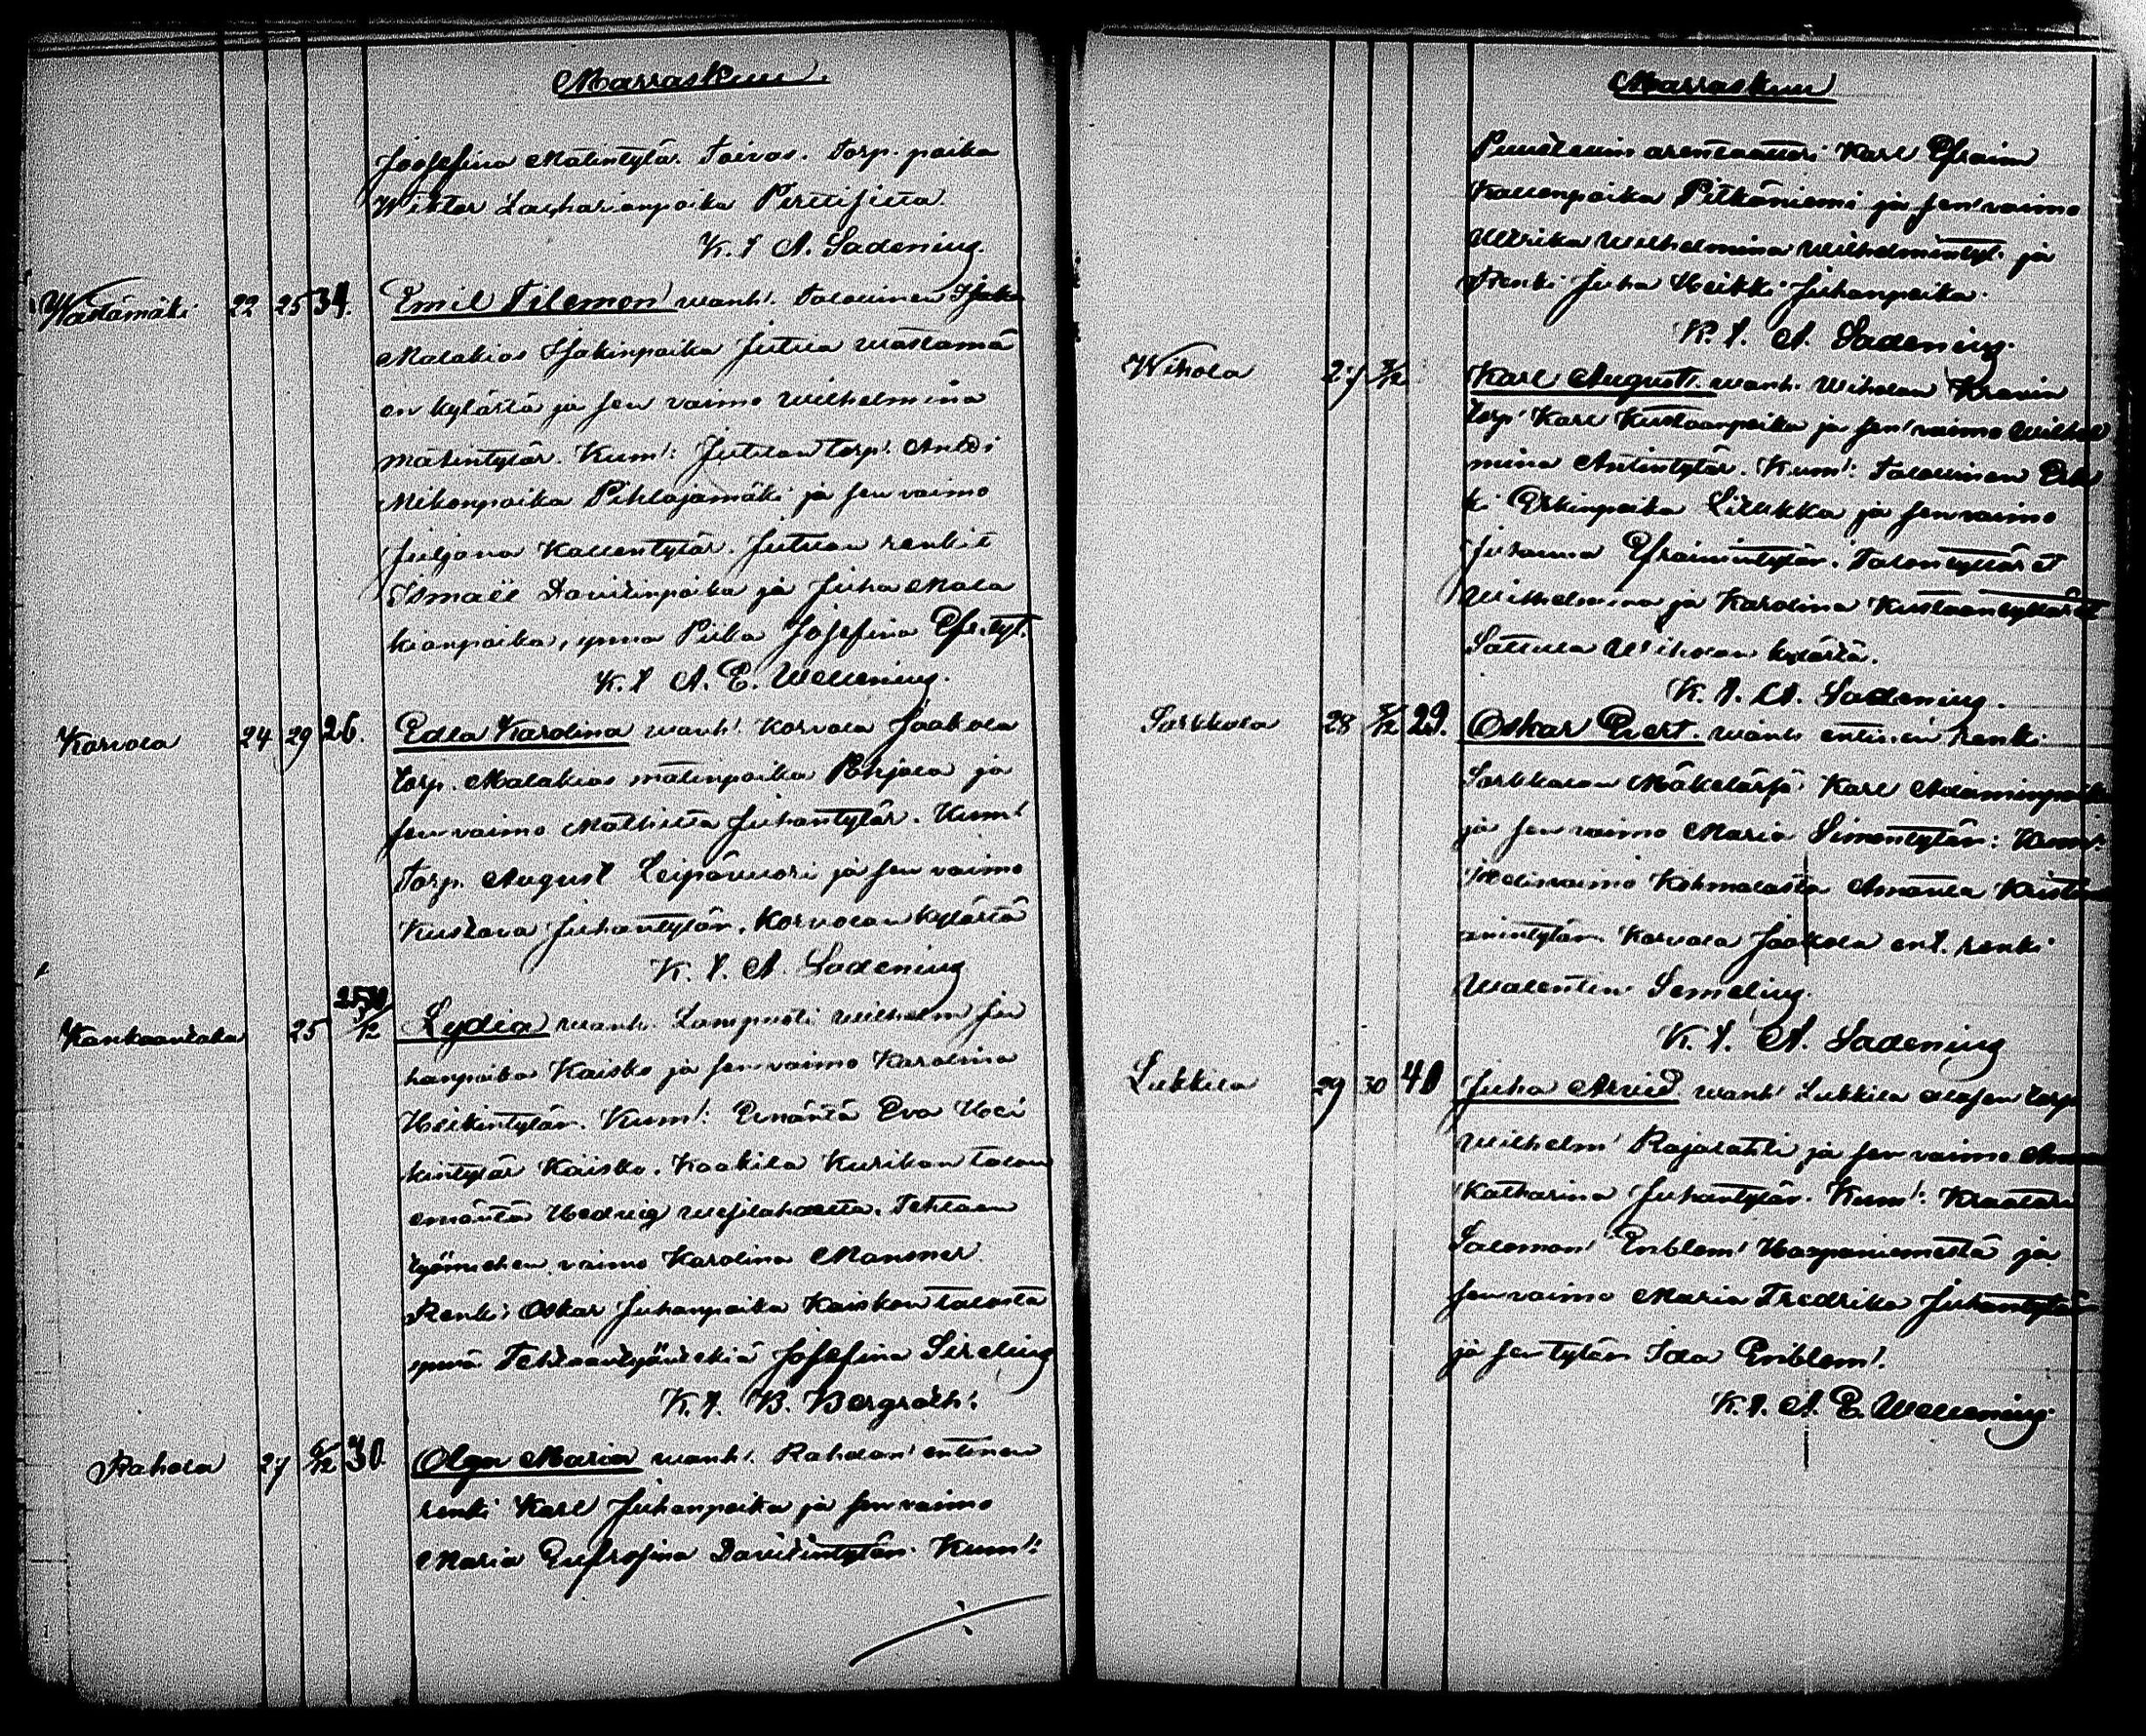 Marraskuu
Josefina Matintytär. Toivos. Torp. poika
Wiktor Zachariaanpoika Perttisilta
K. t A. Sadening.
Wästämäki 22 25 34. Emil Filemon wanh. Talollinen Isak
Malakias Isakinpoika Jutila Wästämä
en kylästä ja sen vaimo Wilhelmina
Matintytär. Kum: Jutilan torp. Antti
Mikonpoika Pihlajamäki ja sen vaimo
Juljana Kallentytär. Jutilan renkit
Ismaël Davidinpoika ja Juha Mala
kianpoika, ynnä Piika Josefina Efr. tyt.
K. t A. E. Wellening.
Karvola 24 29 26. Edla Karolina wanh. Korvola Jaakola
torp. Malakias Matinpoika Pohjola ja
sen vaimo Mathilta Juhantytär. Kum:
Torp. August Leipävuori ja sen vaimo
Kustava Juhantytär. Korvolan kylästä
K. t. A. Sadening
Kankaantaka 25 /12 Lydia wanh. Lampuoti Wilhelm Ju
hanpoika Kaisko ja sen vaimo Karolina
Heikintytär. Kum: Emäntä Eva Hei
kintytär Kaisko. Kaakila Kurikan talon
emäntä Hedvig Wesilahdelta. Tehtaan
työmiehen vaimo Karolina Mansner
Renki Oskar Juhanpoika Kaiskon talosta
ynnä Tehtaantyöntekiä Josefina Sireling
K. t. B. Bergroth.
Rahola 27 6/12 30. Olga Maria wanh. Raholan entinen
renki Karl Juhanpoika ja sen vaimo
Maria Eufrosina Davidintytär. Kum:
Marraskuu
Puustellin arentaattori Karl Efraim
Kallenpoika Pitkäniemi ja sen vaimo
Ulrika Wilhelmina Wilhelmintyt. ja
Renki Juha Heikki Juhanpoika.
K. t. A. Sadening.
Wihola 27 /12 Karl August wanh. Wiholan Kravin
torp. Karl Kustaanpoika ja sen vaimo Wilhel
mina Antintytär. Kum: Talollinen Erk
ki Erkinpoika Liukka ja sen vaimo
Susanna Efraimintytär. Talontyttäret
Wilhelmina ja Karolina Kustaantyttäret
Sattula Wiholan kylästä.
K. t. A. Sadening.
Sarkkola 28 /12 29. Oskar Evert. wanh entinen renki
Sarkkolan Mäkelässä Karl Adaminpoika
ja sen vaimo Maria Simontytär: Kum:
Kohmalasta Amanda Kristi
anintytär. Korvola Jaakola ent. renki
Walentin Semeling.
K. t. A. Sadening
Lukkila 29 30 40 Juha Arvid wanh Lukkila alasen torp
Wilhelm Rajalahti ja sen vaimo Anna
Katharina Juhantytär. Kum: Kraatari
Salomon Enblom Haapaniemestä ja
sen vaimo Maria Fredrika Juhantytär
ja sen tytär Ida Enblom.
K. t. A. E. Wellening.